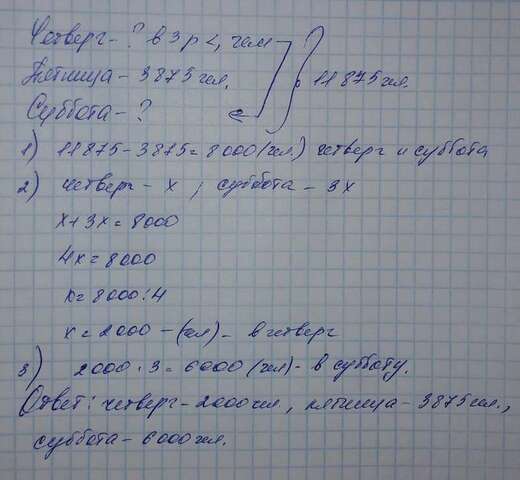 Четверг - ? в 3 р <, чем
Пятница - 3875 чел. 11875 чел.
Суббота - ?
1) 11875 - 3875 = 8000 (чел.) четверг и суббота
2) четверг - х ; суббота - 3х
х + 3х = 8000
4х = 8000
х = 8000 : 4
х = 2000 - (чел) - в четверг
3) 2000 · 3 = 6000 (чел) - в субботу.
Ответ: четверг - 2000 чел, пятница - 3875 чел.,
суббота - 6000 чел.